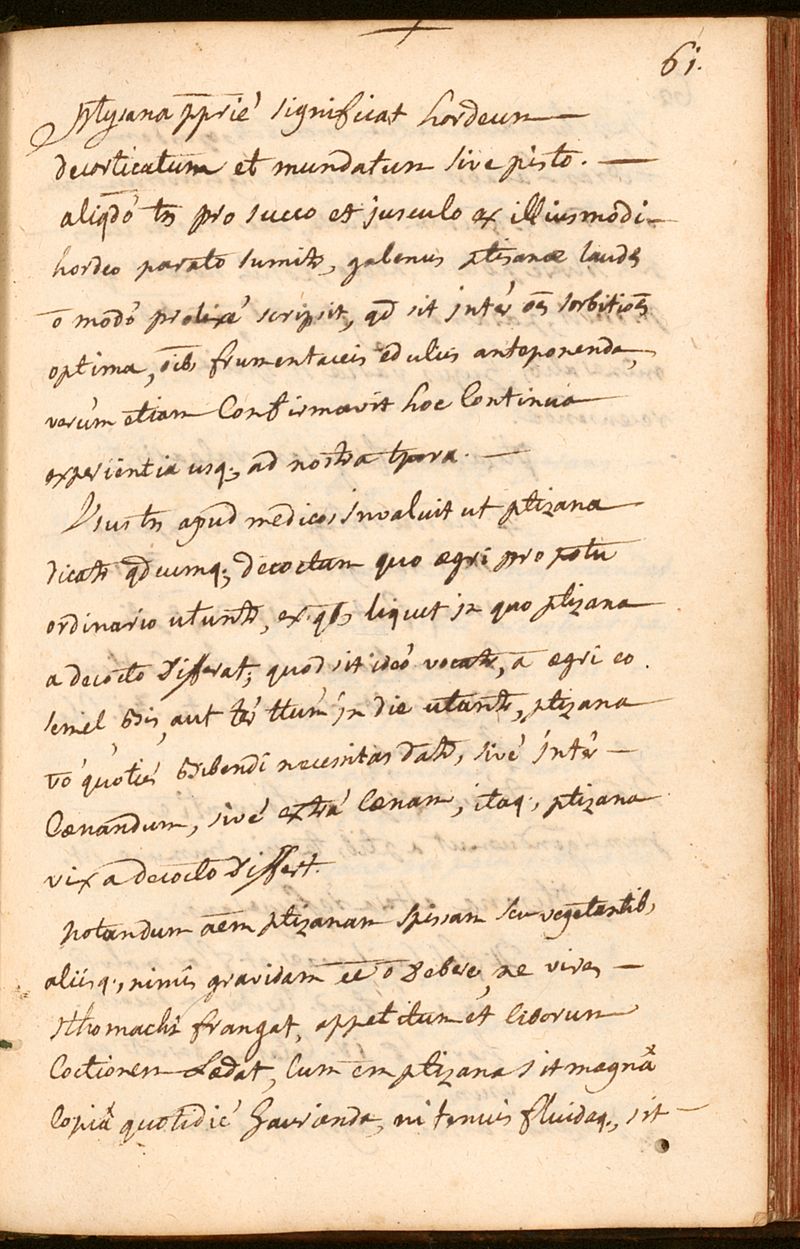 61.
Ptysana pp̄riè significat hordeum
decorticatum et mundatum sive pisto.
aliqdō tn̄ pro succo et jusculo ex illiusmodi
hordeo parato sumitr, galenus ptisanæ laudes
ō modò prolixè scripsit, qd sit inter oēs sorbitiōes
optima, oīb, frumentaceis eduliis anteponenda,
verùm etiam Confirmavit hoc Continua
experientia usq; ad nostra tp̄ora.
Usus tn̄ apud medicos invaluit ut ptizana
dicatr qdcumq; decoctum quo ægri pro potu
ordinario utuntr, ex qb, liquet in quo ptizana
a decocto Differat; quod sit ideò vocatr, ā ægri eo
semel bis, aut tèr ttùm in die utuntr, ptizana
vō quoties bibendi necessitas datr, sivè intèr
Cænandum, sivè extrà Cænam, itaq; ptizana
vix a decocto Differt.
Notandum aēm ptizanam spissam seu vegetantib,
aliisq; nimis gravidam eē ō Debere, ne vires
sthomachi frangat, appetitum et Ciborum
Coctionem Lædat, Cum em ptizana sit magnâ
Copiâ quotidiè haurienda, ni tenuis fluidaq; sit